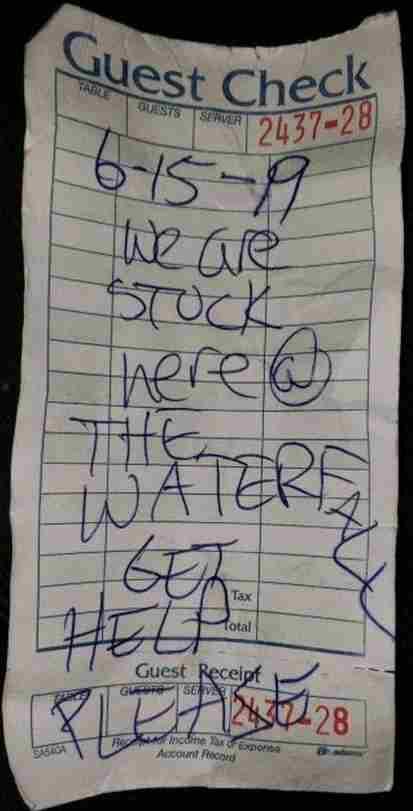 Guest Check
TABLE GUESTS SERVER 2437-28
6-15-19
we are
STUCK
here @
THE
WATERFALL
GET
Tax
HELP
Total
Guest Receipt
TABLE GUESTS SERVER 2437-28
PLEASE
SA540A Receipt for Income Tax or Expense adams
Account Record